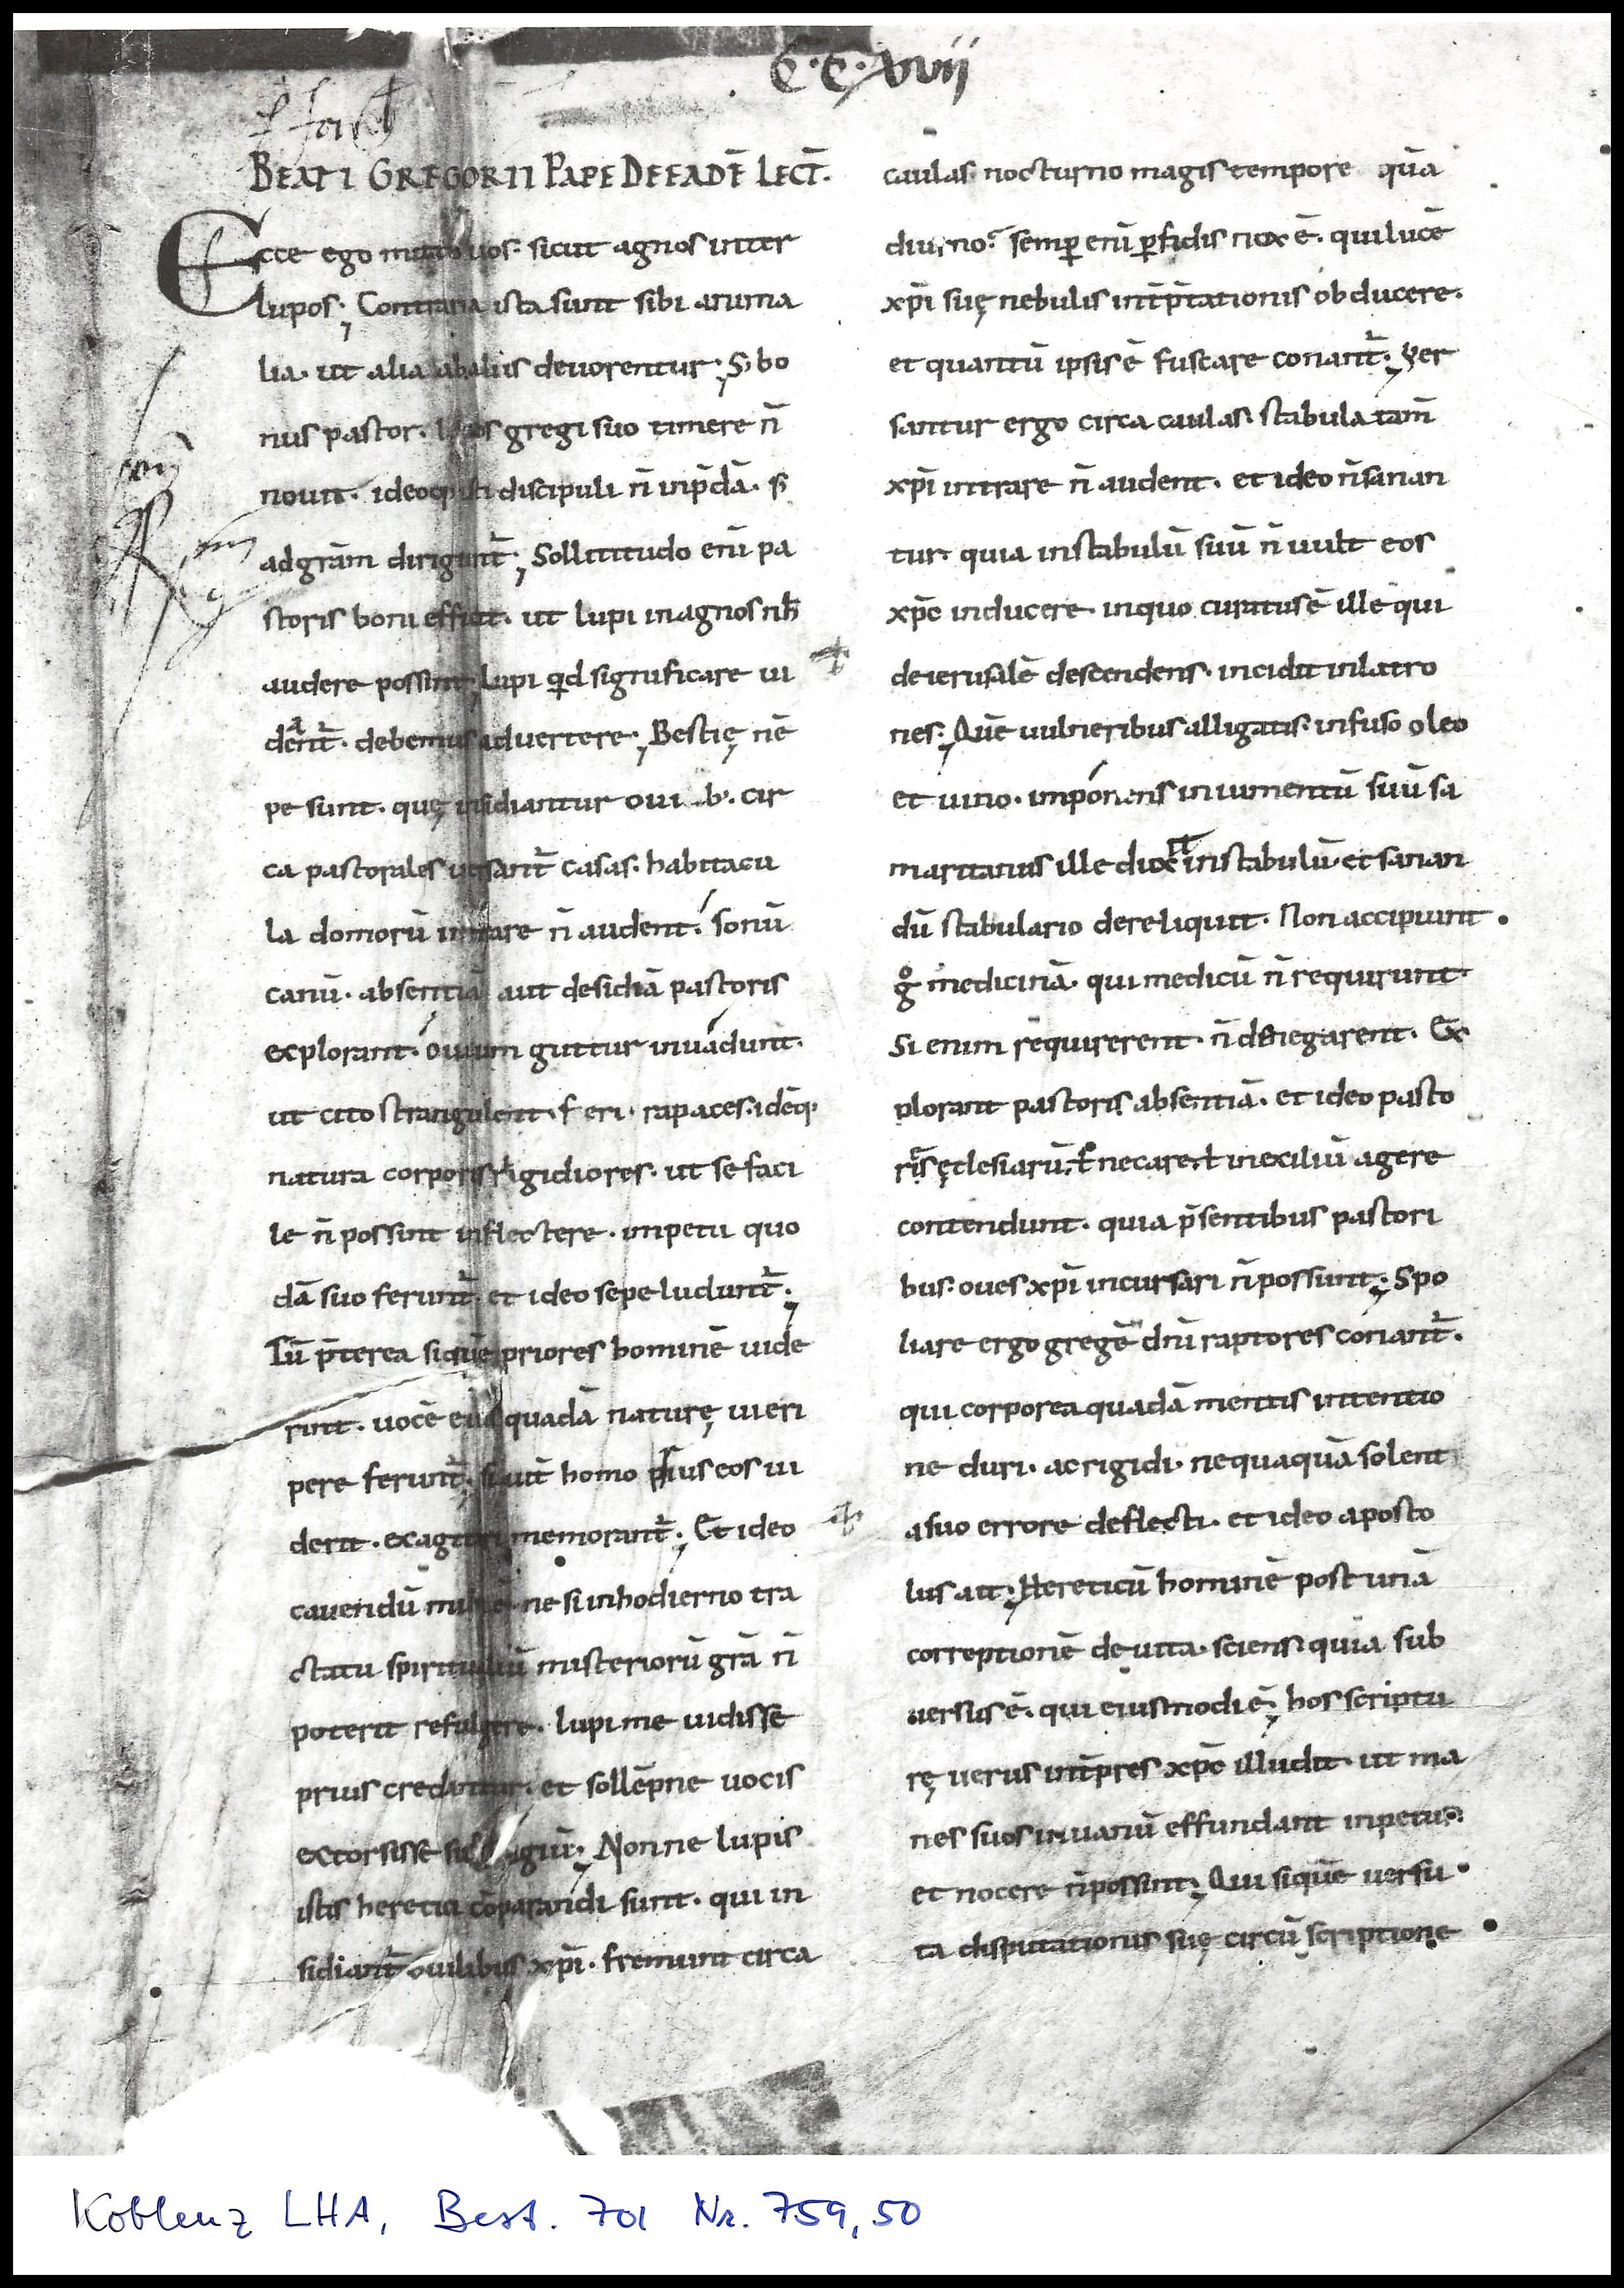 C·C·xvij
BEATI GREGORII PAPE DE EADE̅ LECT̅.
Ecce ego mitto uos: sicut agnos inter
lupos; Contraria ista sunt sibi anima
lia. ut alia ab aliis deuorentur; S; bo
nus pastor. lupos gregi suo timere n̅
nouit. ideoq; isti discipuli n̅ in p̅da̅. s;
ad gr̅am dirigunt᷑; Sollititudo eni̅ pa
storis boni efficit. ut lupi in agnos nih̅
audere possint; Lupi qd̅ significare ui
dent᷑. debemus aduertere; Bestię ne̅
pe sunt. quę insidiantur ouilib;. cir
ca pastorales uersant᷑ casas. habitacu
la domoru̅ intrare n̅ audent. sonu̅
canu̅. absentia̅ aut desidia̅ pastoris
explorant. ouium guttur inuadunt.
ut cito strangulent. feri. rapaces. ide̅q;
natura corporis rigidiores. ut se faci
le n̅ possint inflectere. impetu quo
da̅ suo ferunt᷑. et ideo sepe ludunt᷑;
Tu̅ p̅terea si que̅ priores homine̅ uide
rint. uoce̅ eius quada̅ naturę ui eri
pere ferunt᷑. si aut̅ homo prius eos ui
derit. exagitari memorant᷑; Et ideo
cauendu̅ mihi e̅. ne si in hodierno tra
ctatu spiritualiu̅ misterioru̅ gr̅a n̅
poterit refulgere. lupi me uidisse
prius credantur. et solle̅pne uocis
extorsisse suffragiu̅; Nonne lupis
istis heretici co̅parandi sunt. qui in
sidiant᷑ ouilibus xp̅i. fremunt circa
caulas. nocturno magis tempore qua̅
diurno. semp̱ eni̅ p̱fidis nox e̅. qui luce̅
xp̅i suę nebulis int̅p̅tationis obducere.
et quantu̅ ipsis e̅ fuscare conant᷑; Ver
santur ergo circa caulas. stabula tam̅
xp̅i intrare n̅ audent. et ideo n̅ sanan
tur. quia in stabulu̅ suu̅ n̅ uult eos
xp̅c inducere. in quo curatus e̅ ille qui
de ierusale̅ descendens. incidit in latro
nes; Que̅ uulneribus alligatis. infuso oleo
et uino. imponens in iumentu̅ suu̅ sa
maritanus ille duxit in stabulu̅. et sanan
du̅ stabulario dereliquit. Non accipiunt
gͦ medicina̅. qui medicu̅ n̅ requirunt.
Si enim requirerent. n̅ denegarent. Ex
plorant pastoris absentia̅. et ideo pasto
ris ęclesiaru̅. ł necare. ł in exiliu̅ agere
contendunt. quia p̅sentibus pastori
bus. oues xp̅i incursari n̅ possunt; Spo
liare ergo grege̅ dn̅i raptores conant᷑.
qui corporea quada̅ mentis intentio
ne duri. ac rigidi. nequaqua̅ solent
a suo errore deflecti. et ideo aposto
lus ait; Hereticu̅ homine̅ post una̅
correptione̅ deuita. sciens quia sub
uersus e̅. qui eiusmodi e̅; hos scriptu
rę uerus int̅pres xp̅c illudit. ut ma
nes suos in uanu̅ effundant inpetus.
et nocere n̅ possint; Qui si que̅ uersu
ta disputationis suę circu̅scriptione
Koblenz LHA, Best. 701 Nr. 759,50